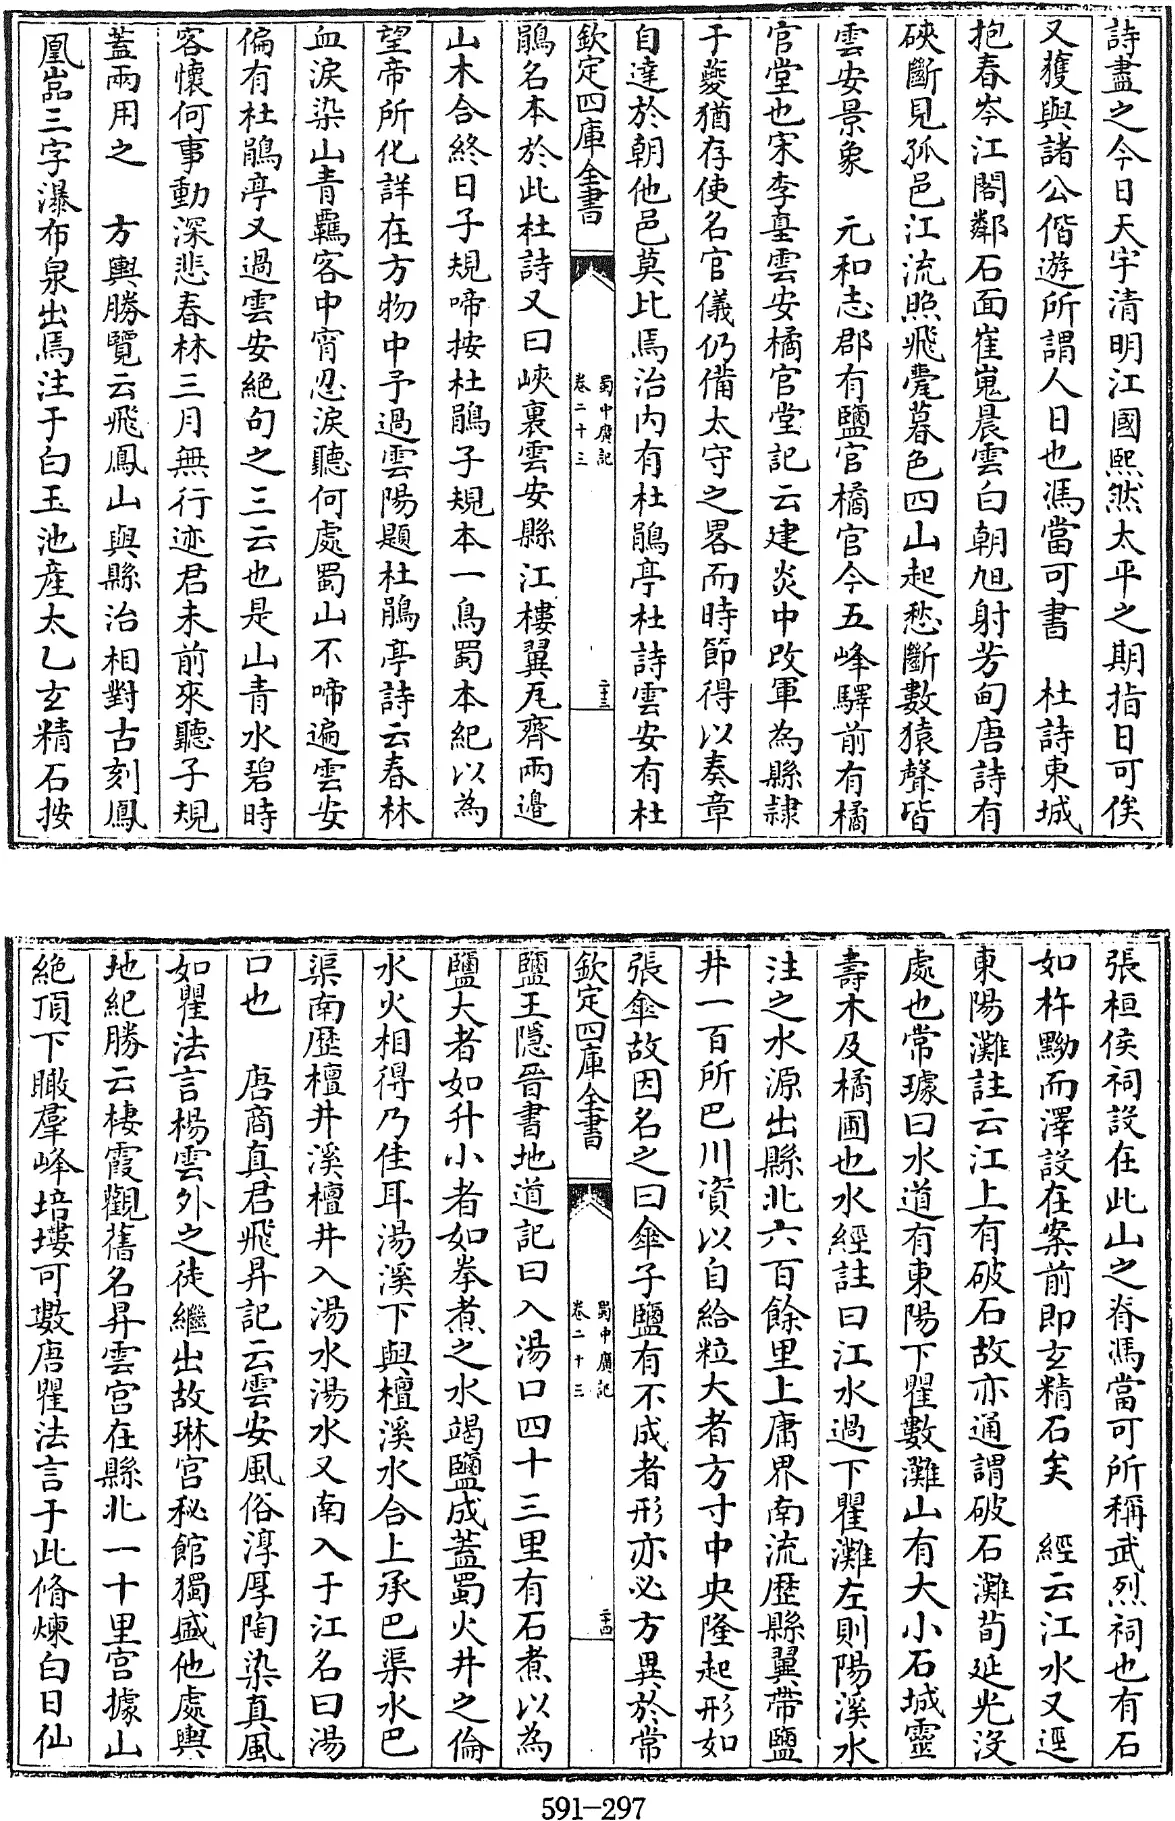 詩盡之今日天宇清明江國熙然太平之期指日可俟
又獲與諸公偕遊所謂人日也馮當可書　杜詩東城
抱春岑江閣鄰石面崔嵬晨雲白朝旭射芳甸唐詩有
硤斷見孤邑江流照飛甍暮色四山起愁斷數猿聲皆
雲安景象　元和志郡有鹽官橘官今五峰驛前有橘
官堂也宋李䑓雲安橘官堂記云建炎中改軍為縣隸
于夔猶存使名官儀仍備太守之畧而時節得以奏章
自達於朝他邑莫比焉治内有杜鵑亭杜詩雲安有杜
欽定四庫全書
蜀中廣記
卷二十三
二十三
鵑名本於此杜詩又曰峽裏雲安縣江樓翼瓦齊兩邊
山木合終日子規啼按杜鵑子規本一鳥蜀本紀以為
望帝所化詳在方物中予過雲陽題杜鵑亭詩云春林
血淚染山青羈客中宵忍淚聽何處蜀山不啼遍雲安
偏有杜鵑亭又過雲安絶句之三云也是山青水碧時
客懷何事動深悲春林三月無行迹君未前來聽子規
蓋兩用之　方輿勝覽云飛鳳山與縣治相對古刻鳳
凰嵓三字瀑布泉出焉注于白玉池產太乙玄精石按
張桓侯祠設在此山之脊馮當可所稱武烈祠也有石
如杵黝而澤設在案前即玄精石矣　經云江水又逕
東陽灘註云江上有破石故亦通謂破石灘荀延光沒
處也常璩曰水道有東陽下瞿數灘山有大小石城靈
壽木及橘圃也水經註曰江水過下瞿灘左則陽溪水
注之水源出縣北六百餘里上庸界南流歷縣翼帶鹽
井一百所巴川資以自給粒大者方寸中央隆起形如
張傘故因名之曰傘子鹽有不成者形亦必方異於常
欽定四庫全書
蜀中廣記
卷二十三
二十四
鹽王隱晉書地道記曰入湯口四十三里有石煮以為
鹽大者如升小者如拳煮之水竭鹽成蓋蜀火井之倫
水火相得乃佳耳湯溪下與檀溪水合上承巴渠水巴
渠南歷檀井溪檀井入湯水湯水又南入于江名曰湯
口也　唐商真君飛昇記云雲安風俗淳厚陶染真風
如瞿法言楊雲外之徒繼出故琳宮秘館獨盛他處輿
地紀勝云棲霞觀舊名昇雲宮在縣北一十里宮據山
絶頂下瞰羣峰培塿可數唐瞿法言于此脩煉白日仙
591-297